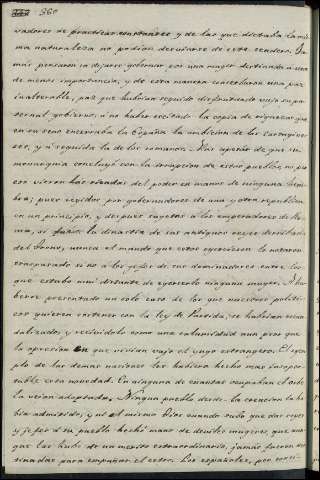 360
vadores de practicas constantes y de las que dictaba la mis
ma naturaleza no podian desviarse de este sendero. Ja
mas pensaron en dejarse gobernar por una muger destinada a usos
de menos importancia, y de esta manera consolidaron una paz
inalterable, paz que habrian seguido disfrutando bajo su pa
ternal gobierno, a no haber excitado la copia de riquezas que
en su seno encerraba la España la ambicion de los cartagine
ses, y a seguida la de los romanos. Mas apesar de que su
monarquia concluyó con la irrupcion de estos pueblos, no por
eso vieron las riendas del poder en manos de ninguna hem
bra; pues regidos por gobernadores de una y otra republica
en un principio, y despues sugetos a los emperadores de Ro
ma, se la dinastia de sus antiguos reyes derribada
del trono, nunca el mando que estos egercieron lo notaron
traspasado si no a los gefes de sus dominadores entre los
que estubo muy distante de egercerlo ninguna muger. A ha
berse presentado un solo caso de los que nuestros politi
cos quieren sostener con la ley de Partida, se habrian escan
dalizado, y recibidolo como una calamidad aun peor que
la opresion en que vivian bajo el yugo estrangero. El egem
plo de las demas naciones les hubiera hecho mas insopor
table esta novedad. En ninguna de cuantas ocupaban el orbe
la veian adoptada. Ningun pueblo desde la creacion la ha
bia admitido, y al mismo Dios cuando tubo que dar reyes
y gefes a su pueblo hechó mano de debiles mugeres, que aun
que las hubo de un merito extraordinario, jamas fueron des
tinadas para empuñar el cetro. Los españoles, por consi